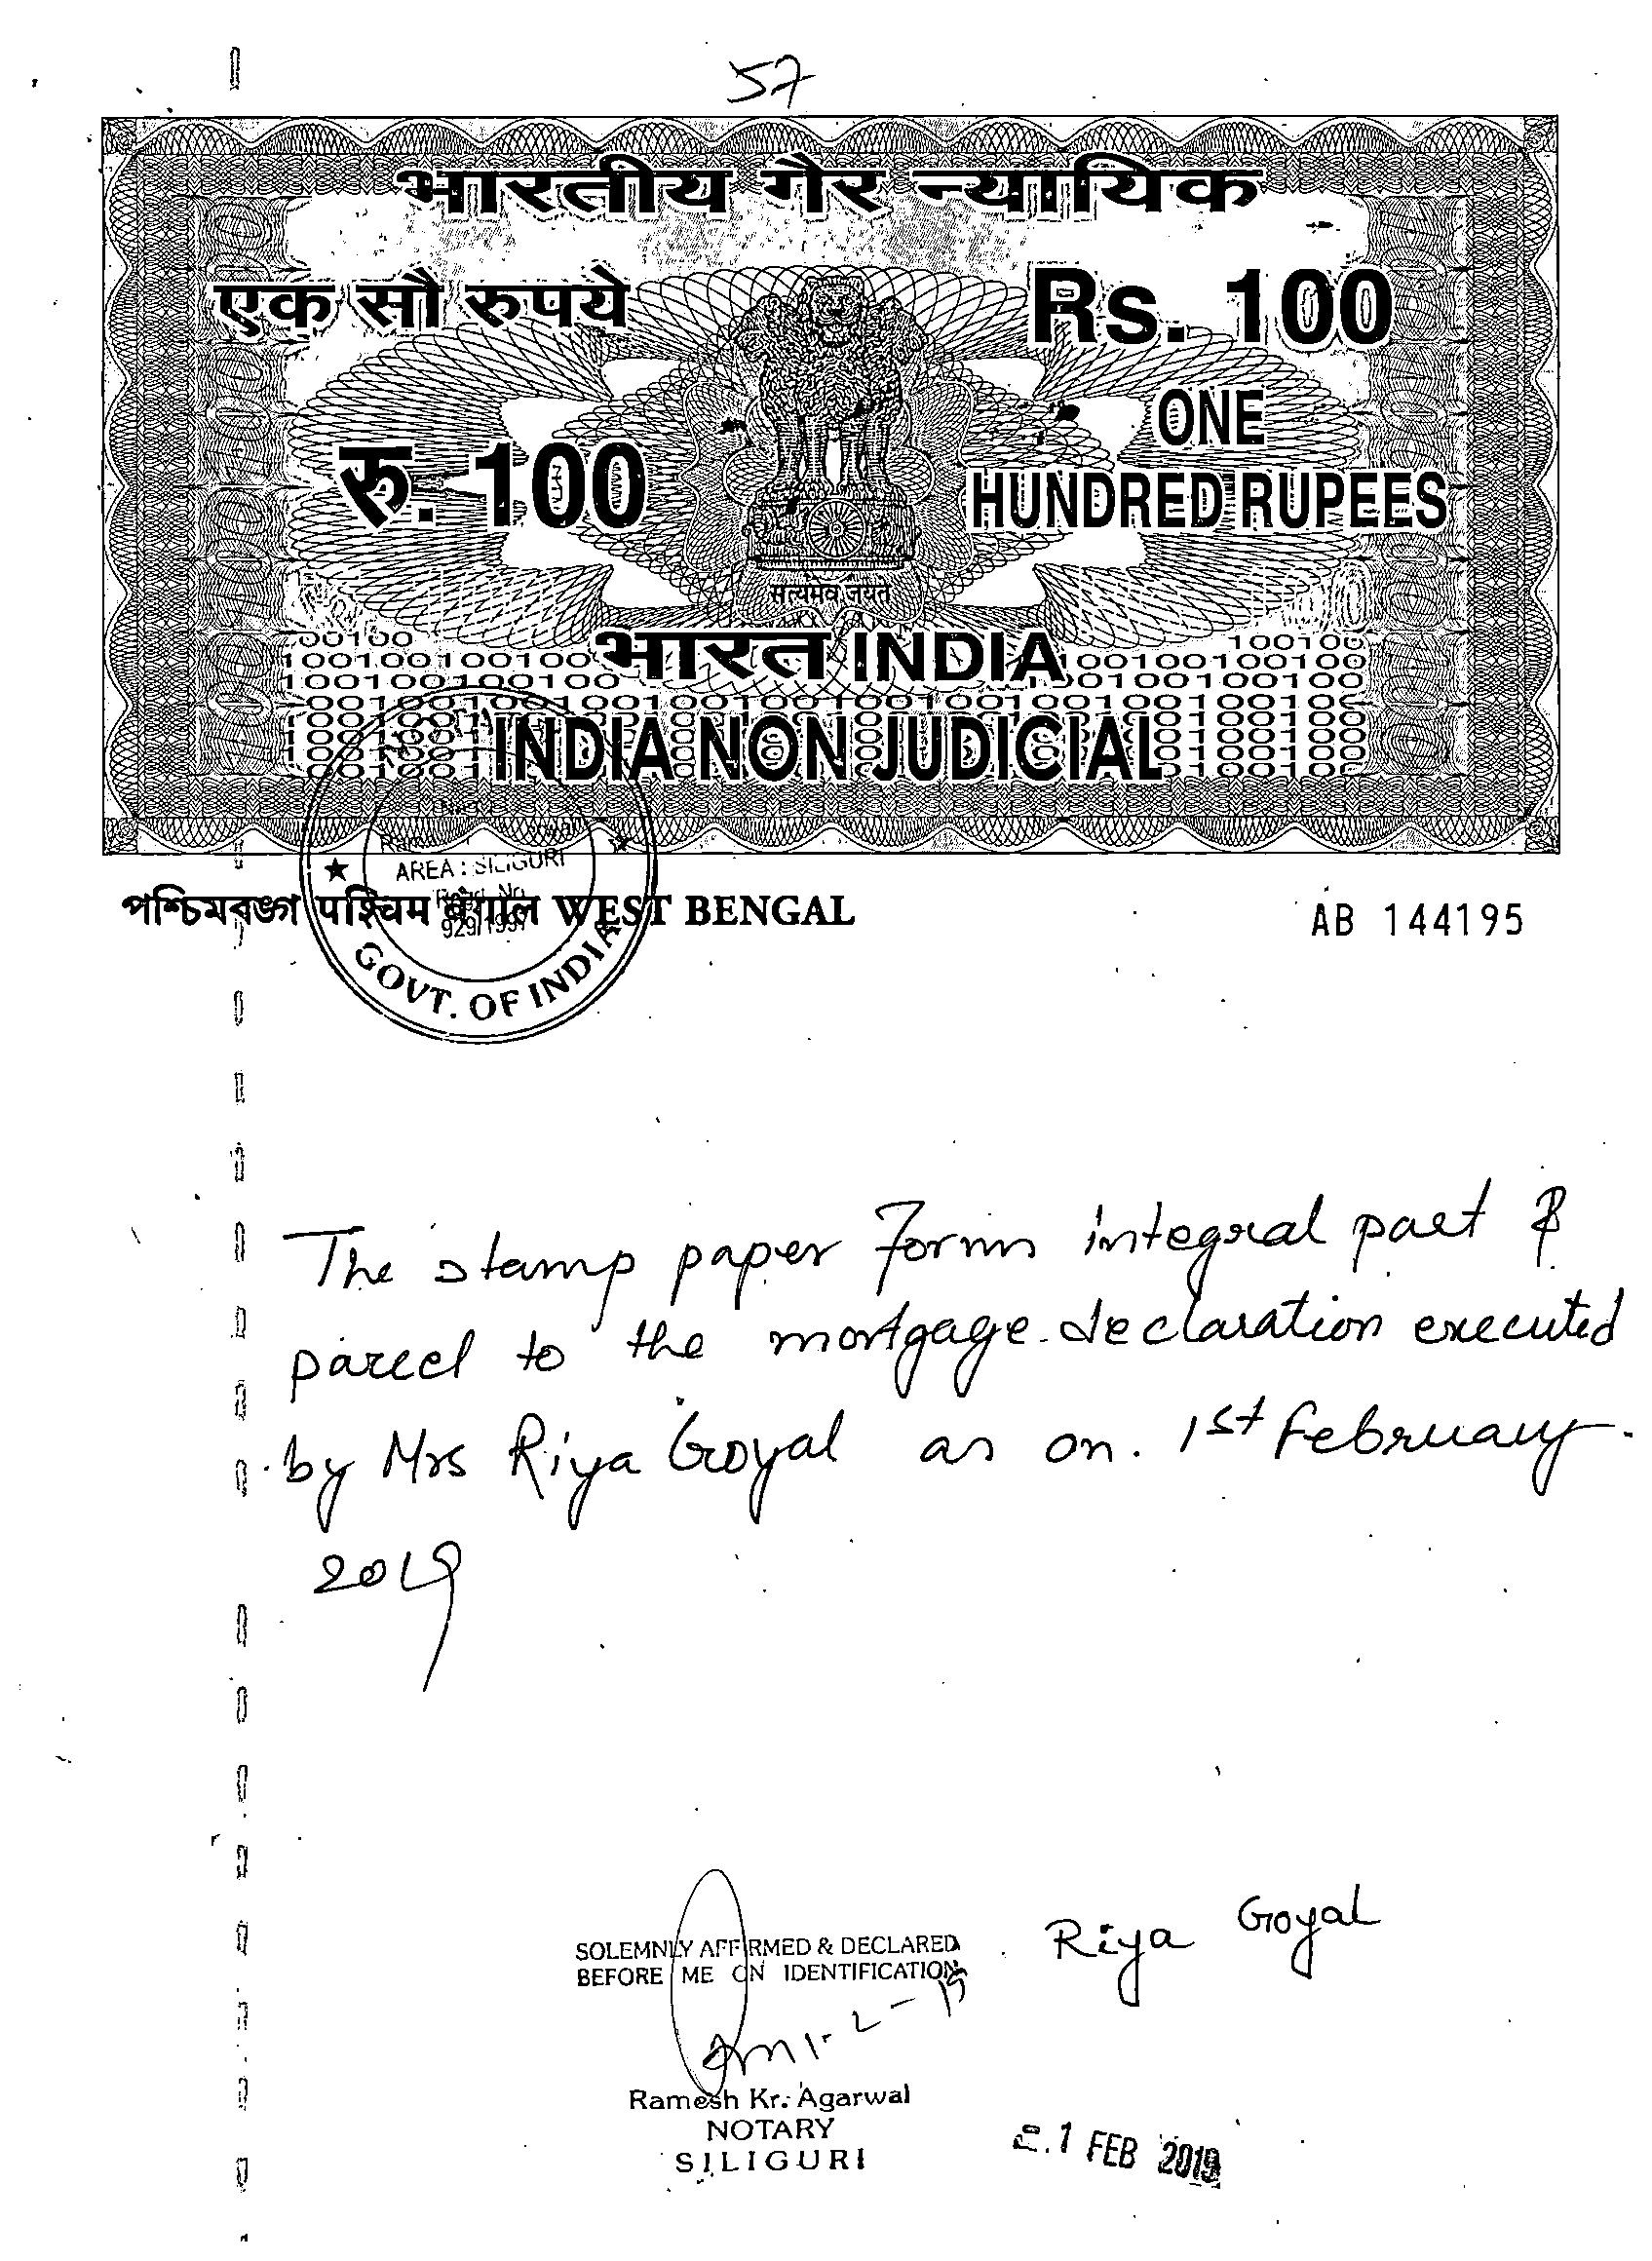 57
भारतीय गैर न्यायिक
एक सौ रुपये
Rs. 100
रु. 100
ONE
HUNDRED RUPEES
सत्यमेव जयते
भारत INDIA
INDIA NON JUDICIAL
AREA : SILIGURI
Regd. No.
929/1997
GOVT. OF INDIA
পশ্চিমবঙ্গ पश्चिम बंगाल WEST BENGAL
AB 144195
The stamp paper forms integral part &
parcel to the mortgage declaration executed
by Mrs Riya Goyal as on. 1st February
2019
SOLEMNLY AFFIRMED & DECLARED
BEFORE ME ON IDENTIFICATION
Riya Goyal
1-2-19
Ramesh Kr. Agarwal
NOTARY
SILIGURI
1 FEB 2019